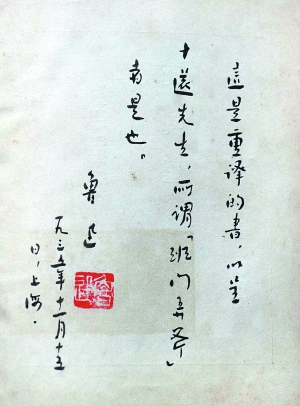 這是重譯的書，以呈
十還先生，所謂「班門弄斧」
者是也。
魯迅
一九三五年十一月十五
日，上海．